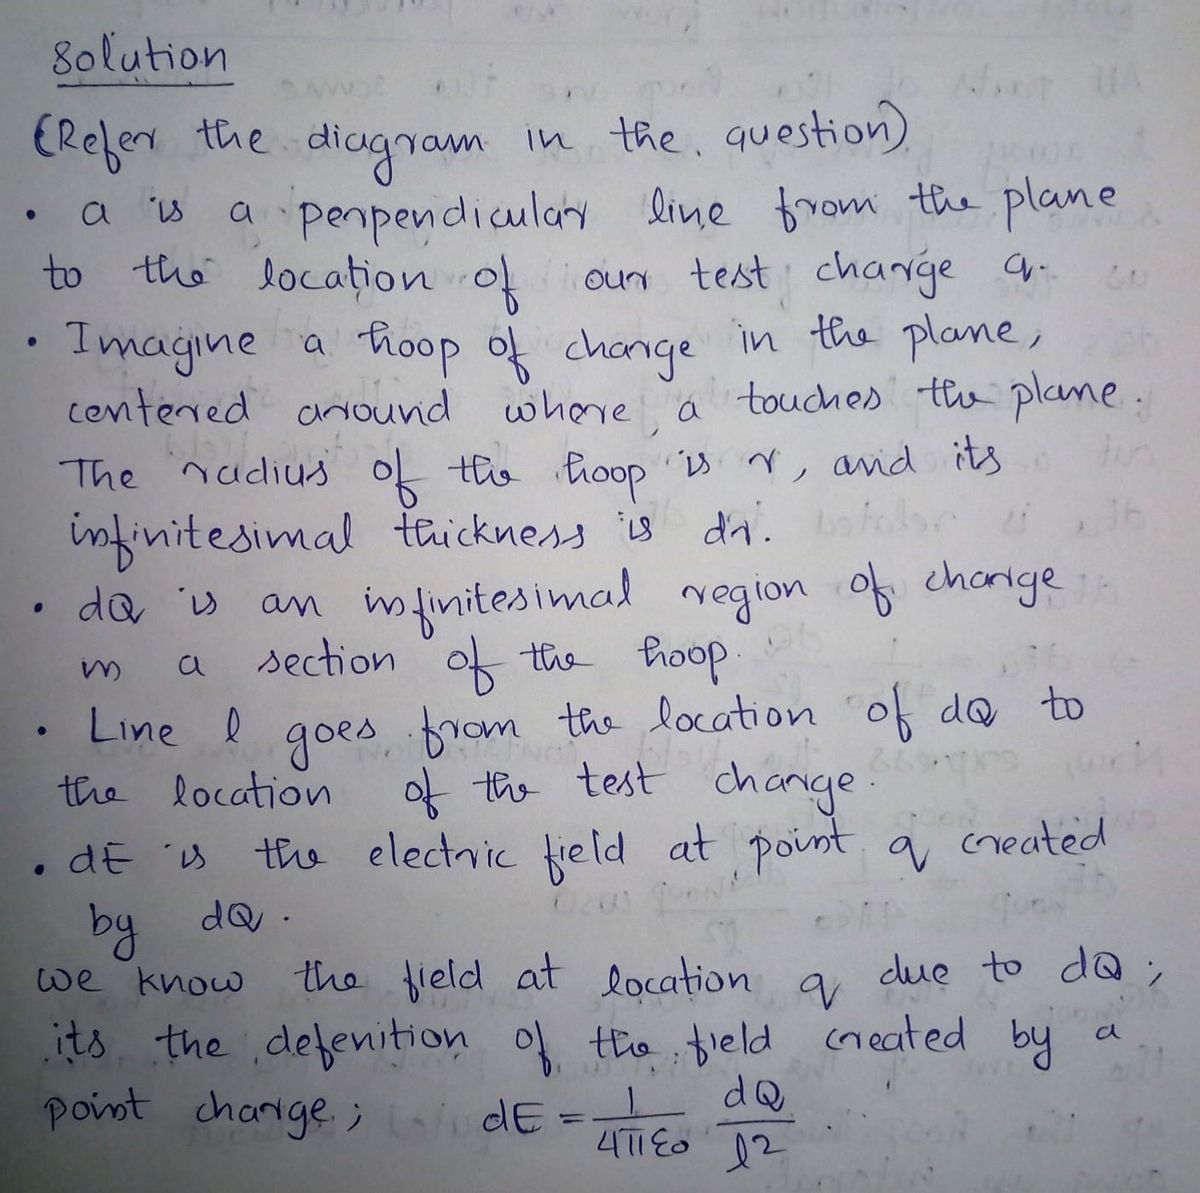 Solution
(Refer the diagram in the question)
• a is a perpendicular line from the plane
to the location of our test charge q.
• Imagine a hoop of charge in the plane,
centered around where a touches the plane.
The radius of the hoop is r, and its
infinitesimal thickness is dr.
• dQ is an infinitesimal region of charge
in a section of the hoop.
• Line l goes from the location of dQ to
the location of the test charge.
• dE is the electric field at point q created
by dQ.
we know the field at location q due to dQ;
its the defenition of the field created by a
point charge; dE = 1/4πε0 dQ/l2.